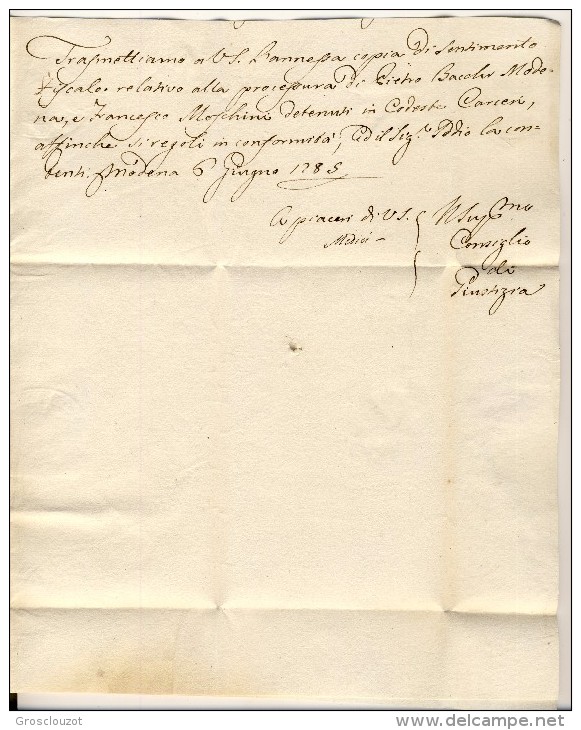 Trasmettiamo a V.S. l'annessa copia di sentimento
Fiscale relativo alla procedura di Pietro Bacchi Mode-
na, e Francesco Moschini detenuti in Codeste Carceri,
affinche si regoli in conformità, ed il Sig.e Iddio la con-
tenti. Modena 6 Giugno 1785
A piaceri di V.S.
Il Sup.mo
Consiglio
di
Giustizia
Grosclouzot
www.delcampe.net